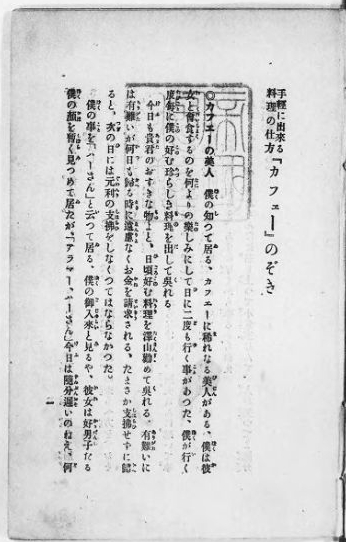 手輕に出來る
料理の仕方
『カフェー』のぞき
◎カフェーの美人 僕の知つて居る、カフェーに稀れなる美人がある、僕は彼
女と會食するのを何よりの樂しみにして日に二度も行く事があつた、僕が行く
度毎に僕の好む珍らしき料理を出して呉れる
今日も貴君のおすきな物よと、日頃好む料理を澤山勸めて呉れる、有難いに
は有難いが何日も歸る時に遠慮なくお金を請求される、たまさか支拂せずに歸
ると、次の日には元利の支拂をしなくつてはならなかつた。
僕の事を「ハーさん」と云つて居る、僕の御入來と見るや、彼女は好男子たる
僕の顏を暫く見つめて居たが、「アラマー、ハーさん」今日は隨分遲いのねえ、何
一